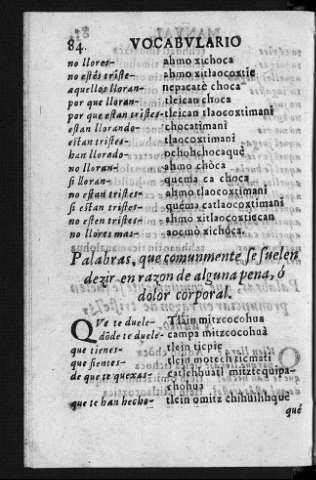 84. VOCABVLARIO
no llores- ahmo xichoca
no estés triste- ahmo xitlaocoxtie
aquellos lloran- nepacatè choca
por que lloran- tleican choca
por que estan tristes- tleican tlaocoxtimani
estan llorando- chocatimani
estan tristes- tlaocoxtimani
han llorado- ochohchocaquè
no lloran- ahmo chòca
si lloran- quèma ca choca
no estan tristes- ahmo tlaocoxtimani
si estan tristes- quèma catlaocoxtimani
no esten tristes- ahmo xitlaocoxtiecan
no llores mas- aocmò xichóca.
Palabras, que comunmente se suelen
dezir en razon de alguna pena, ó
dolor corporal.
QVe te duele- Tlein mitzcocohua
dōde te duele- campa mitzcocohuà
que tienes- tlein ticpie
que sientes- tlein motechticmati
de que te quexas- catlehhuatl mitztequipa-
chohua
que te han hecho- tlein omitz chihuihhquè
què